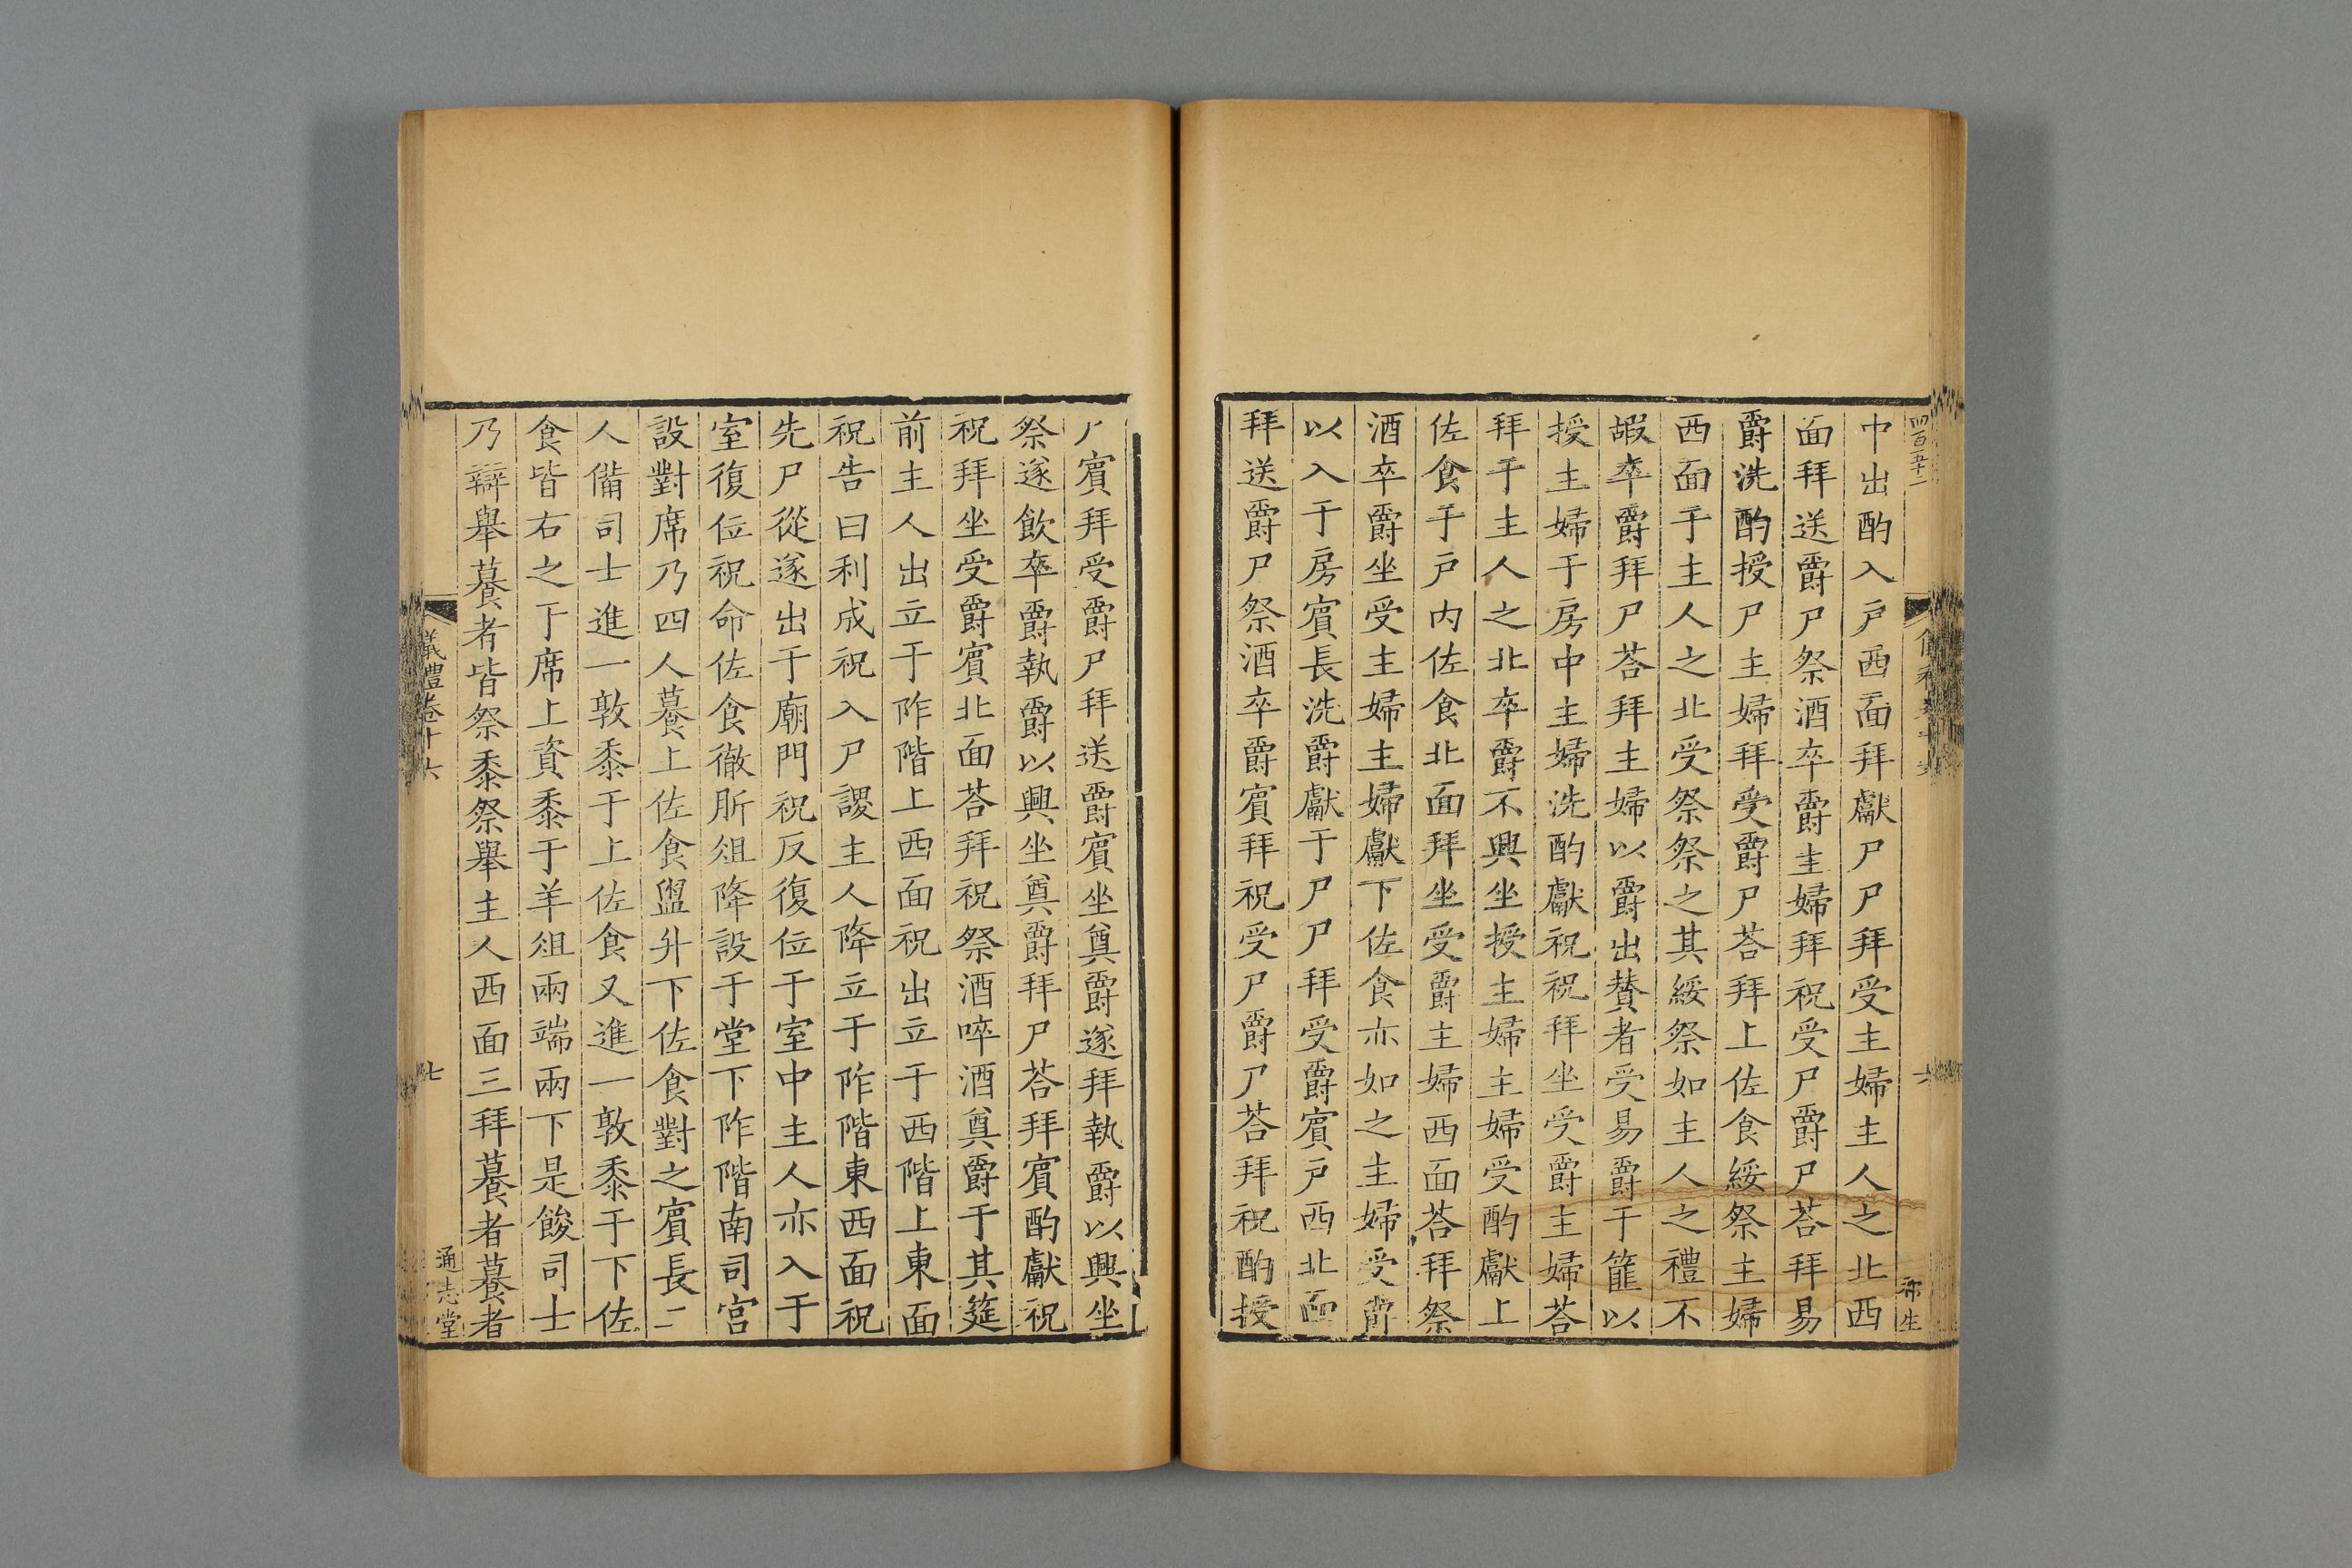 四百五十二
中出酌入戶西面拜獻尸尸拜受主婦主人之北西
面拜送爵尸祭酒卒爵主婦拜祝受尸爵尸荅拜易
爵洗酌授尸主婦拜受爵尸荅拜上佐食綏祭主婦
西面于主人之北受祭祭之其綏祭如主人之禮不
嘏卒爵拜尸荅拜主婦以爵出贊者受易爵于篚以
授主婦于房中主婦洗酌獻祝祝拜坐受爵主婦荅
拜于主人之北卒爵不興坐授主婦主婦受酌獻上
佐食于戶內佐食北面拜坐受爵主婦西面荅拜祭
酒卒爵坐受主婦主婦獻下佐食亦如之主婦受爵
以入于房賓長洗爵獻于尸尸拜受爵賓戶西北面
拜送爵尸祭酒卒爵賓拜祝受尸爵尸荅拜祝酌授
尸賓拜受爵尸拜送爵賓坐奠爵遂拜執爵以興坐
祭遂飲卒爵執爵以興坐奠爵拜尸荅拜賓酌獻祝
祝拜坐受爵賓北面荅拜祝祭酒啐酒奠爵于其筵
前主人出立于阼階上西面祝出立于西階上東面
祝告曰利成祝入尸謖主人降立于阼階東西面祝
先尸從遂出于廟門祝反復位于室中主人亦入于
室復位祝命佐食徹肵俎降設于堂下阼階南司宮
設對席乃四人䉵上佐食盥升下佐食對之賓長二
人備司士進一敦黍于上佐食又進一敦黍于下佐
食皆右之于席上資黍于羊俎兩端兩下是餕司士
乃辯舉䉵者皆祭黍祭舉主人西面三拜䉵者䉵者
儀禮卷十六
七
通志堂